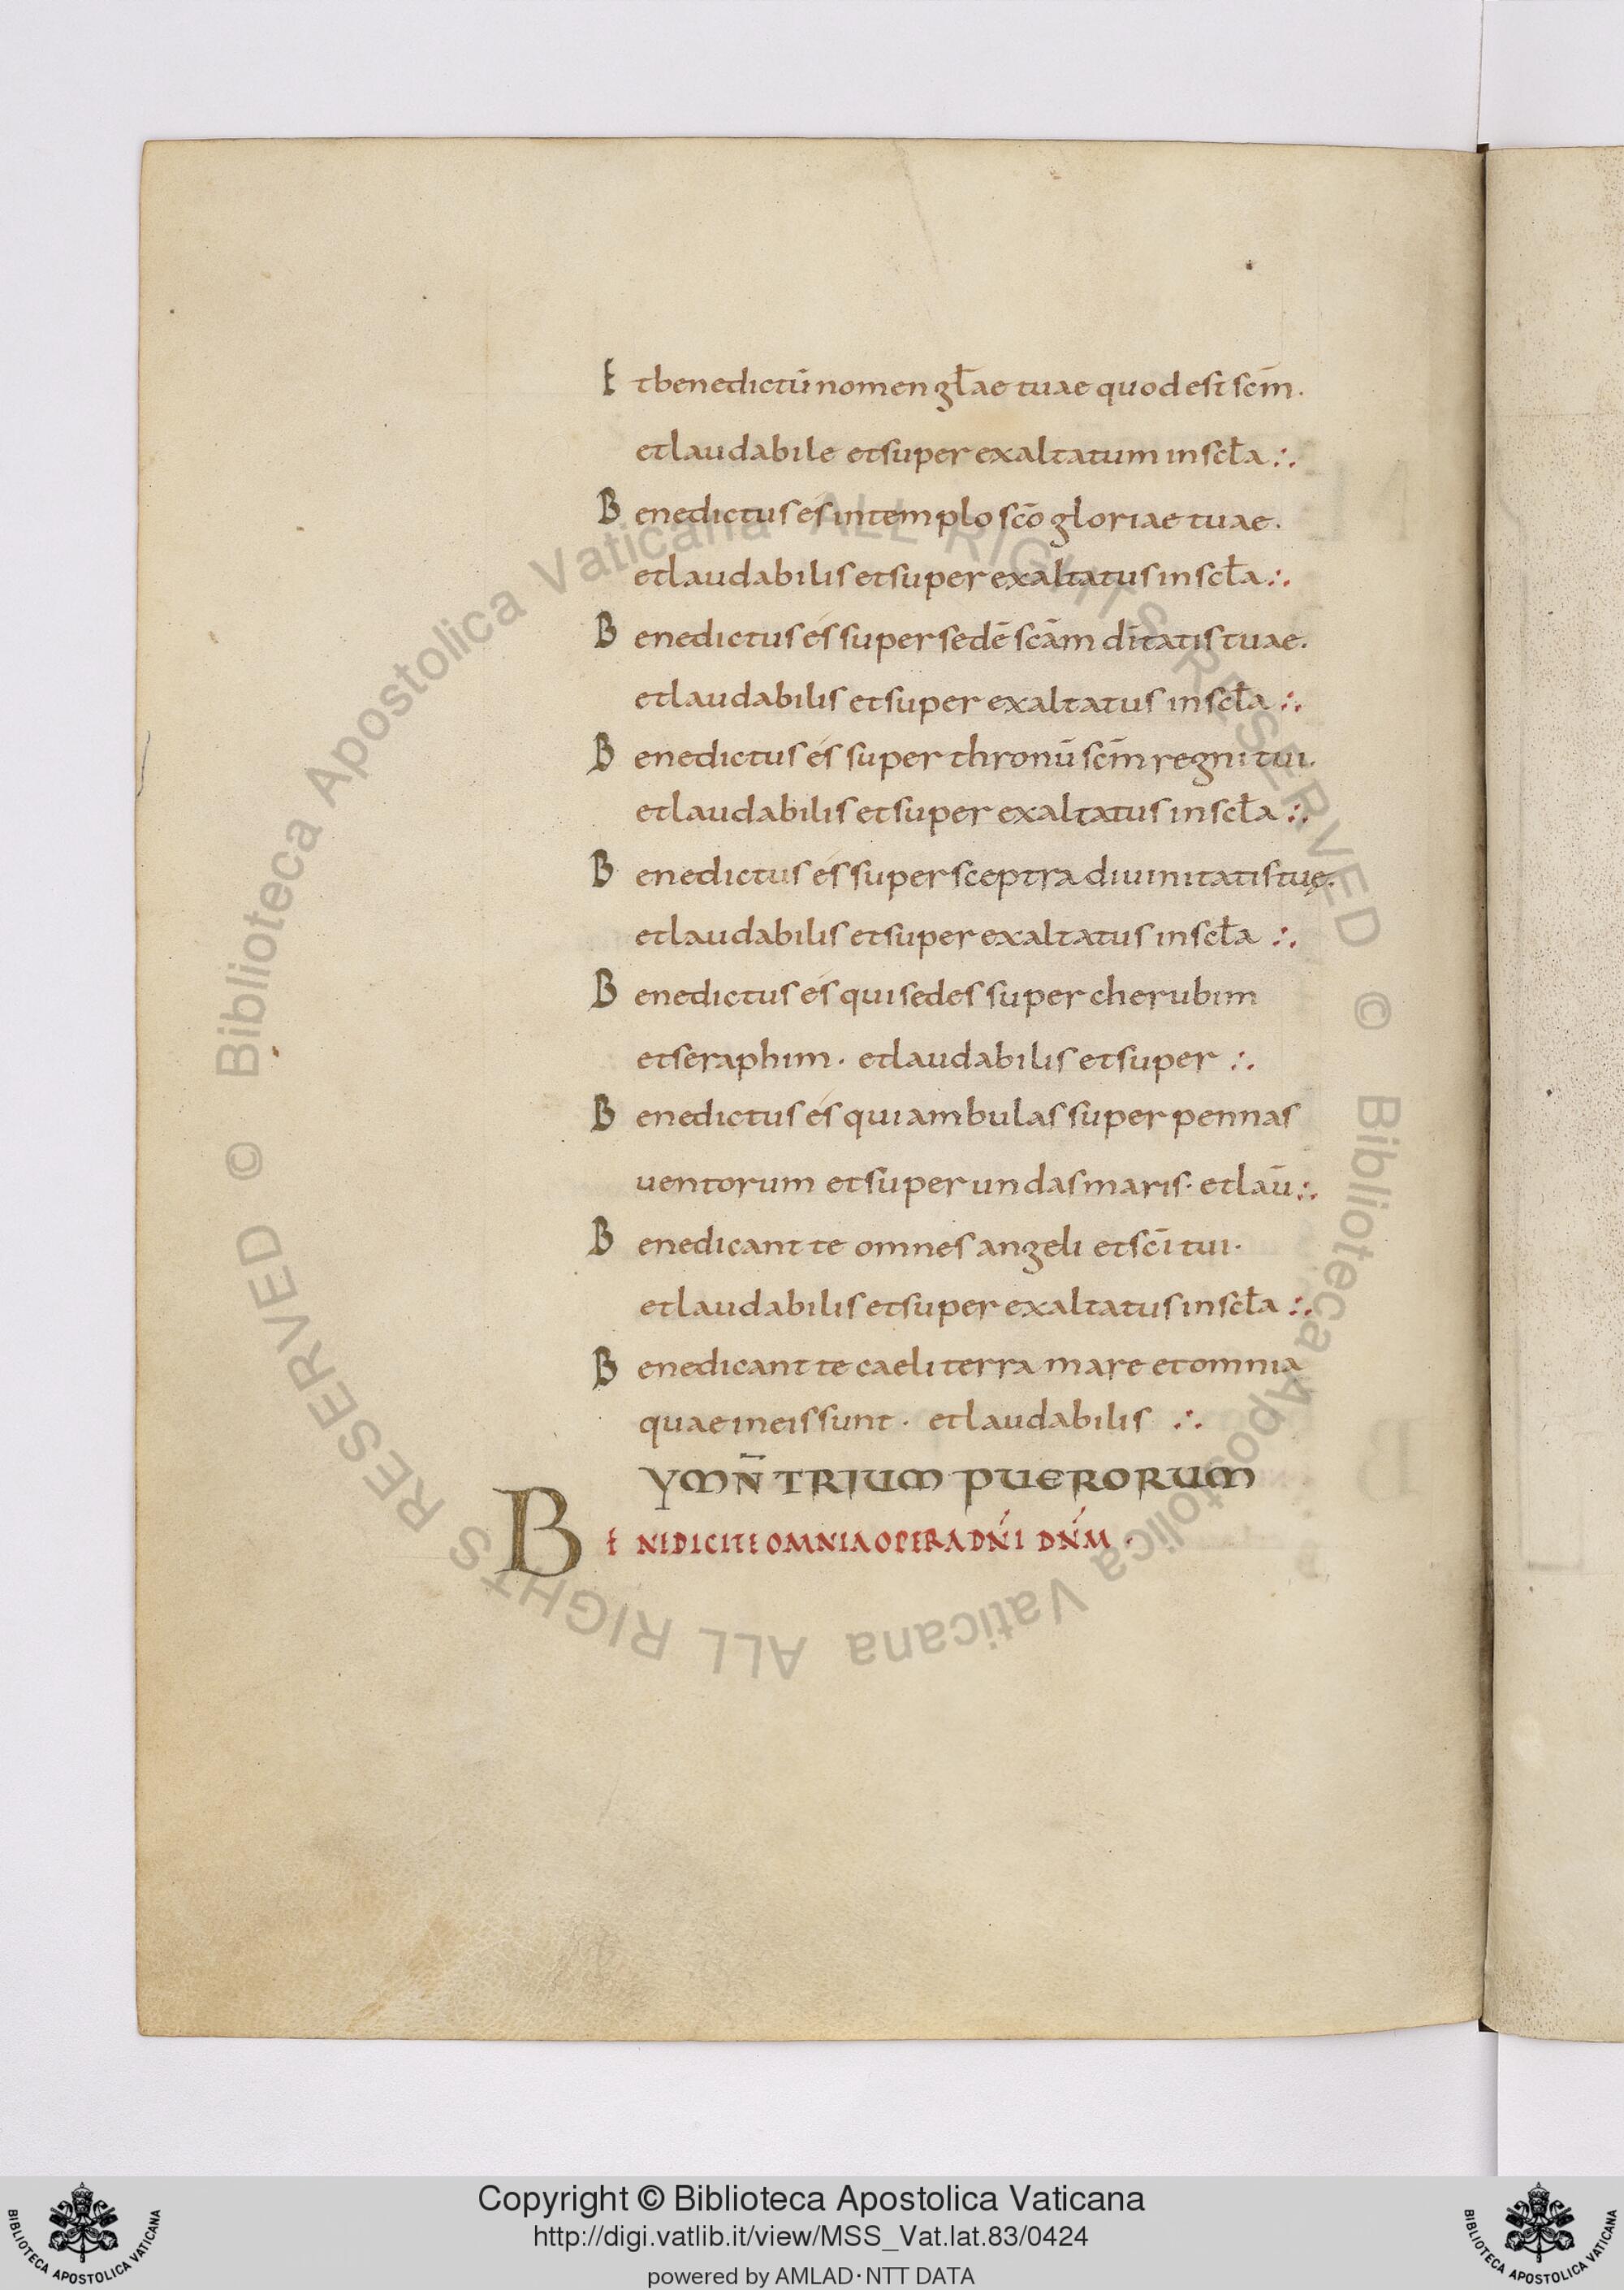 Et benedictū nomen głae tuae quod est scm̄.
et laudabile et super exaltatum in scła ∴
Benedictus és in templo scō gloriae tuae.
et laudabilis et super exaltatus in scła ∴
Benedictus és super sedē scām dītatis tuae.
et laudabilis et super exaltatus in scła ∴
Benedictus és super thronū scm̄ regni tui.
et laudabilis et super exaltatus in scła ∴
Benedictus és super sceptra diuinitatis tuę.
et laudabilis et super exaltatus in scła ∴
Benedictus és qui sedes super cherubim
et seraphim · et laudabilis et super ∴
Benedictus és qui ambulas super pennas
uentorum et super undas maris · et laū ∴
Benedicant te omnes angeli et scī tui ·
et laudabilis et super exaltatus in scła ∴
Benedicant te caeli terra mare et omnia
quae in eis sunt · et laudabilis ∴
YMN̄ TRIUM PUERORUM
BENEDICITE OMNIA OPERA DN̄I DN̄M ·
© Biblioteca Apostolica Vaticana ALL RIGHTS RESERVED © Biblioteca Apostolica Vaticana ALL RIGHTS RESERVED
Copyright © Biblioteca Apostolica Vaticana
http://digi.vatlib.it/view/MSS_Vat.lat.83/0424
powered by AMLAD·NTT DATA
BIBLIOTECA APOSTOLICA VATICANA
BIBLIOTECA APOSTOLICA VATICANA